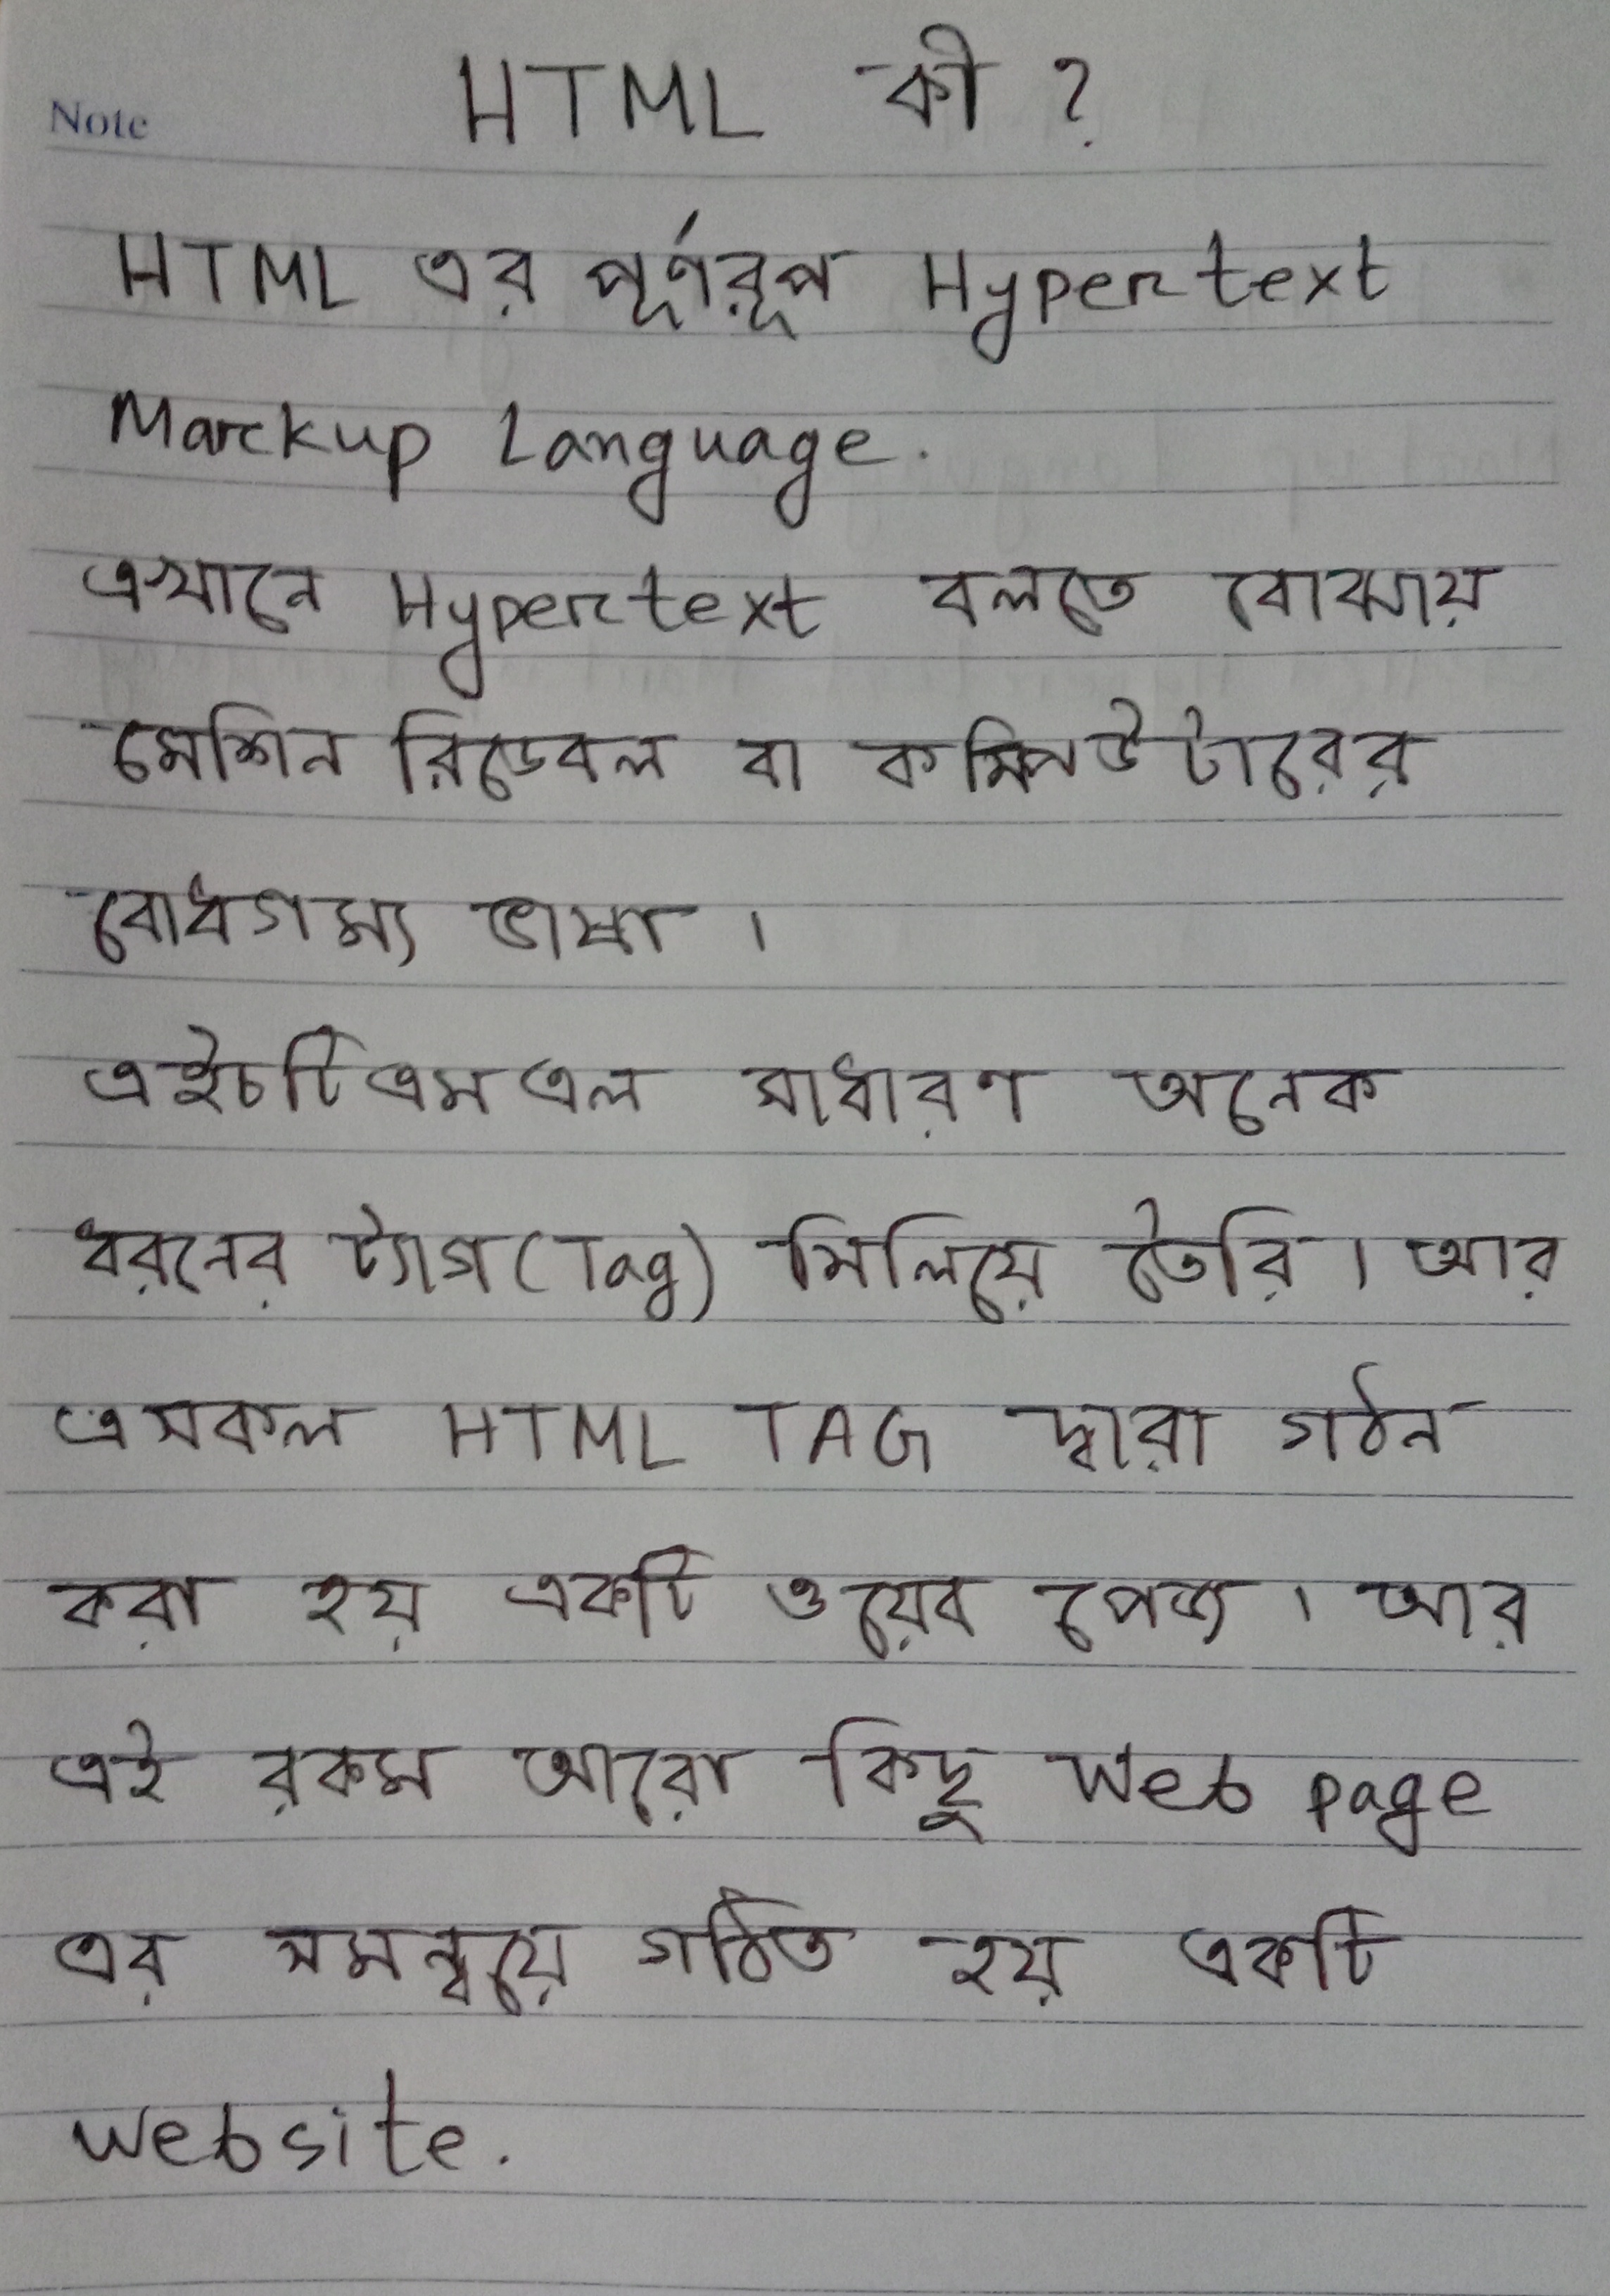 Note
HTML কী ?
HTML এর পূর্ণরূপ Hypertext
Markup Language.
এখানে Hypertext বলতে বোঝায়
মেশিন রিডেবল বা কম্পিউটারের
বোধগম্য ভাষা ।
এইচটিএমএল সাধারণ অনেক
ধরনের ট্যাগ (Tag) মিলিয়ে তৈরি । আর
এসকল HTML TAG দ্বারা গঠন
করা হয় একটি ওয়েব পেজ । আর
এই রকম আরো কিছু Web page
এর সমন্বয়ে গঠিত হয় একটি
Website.